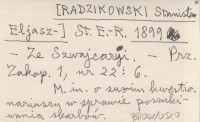 [RADZIKOWSKI Stanisław
Eljasz-] ST. E.-R. 1899
- Ze Szwajcaryi. - Prz.
Zakop. 1, nr 22 : 6.
M. in. o swoim kwestio-
nariuszu w sprawie poszuki-
wania skarbów.